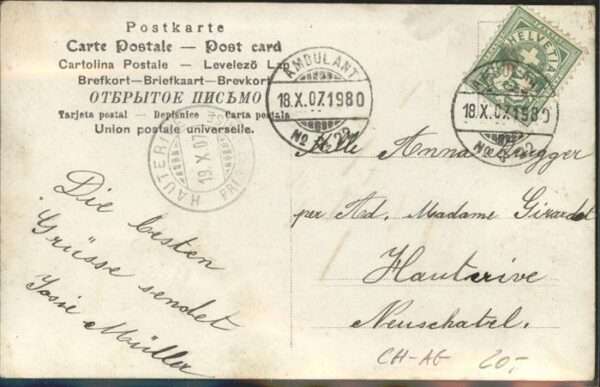 Postkarte
Carte Postale — Post card
Cartolina Postale — Levelező Lap
Brefkort—Briefkaart—Brevkort
ОТКРЫТОЕ ПИСЬМО
Tarjeta postal — Dopisnice — Carta postala
Union postale universelle.
AMBULANT
18.X.07.1980
No
HELVETIA
18.X.07.1980
No
HAUTERIVE
19.X.07
Die besten
Grüsse sendet
Müller
Anna
per Ad. Madame Girardet
Hauterive
Neuschatel.
CH-AG 20.-